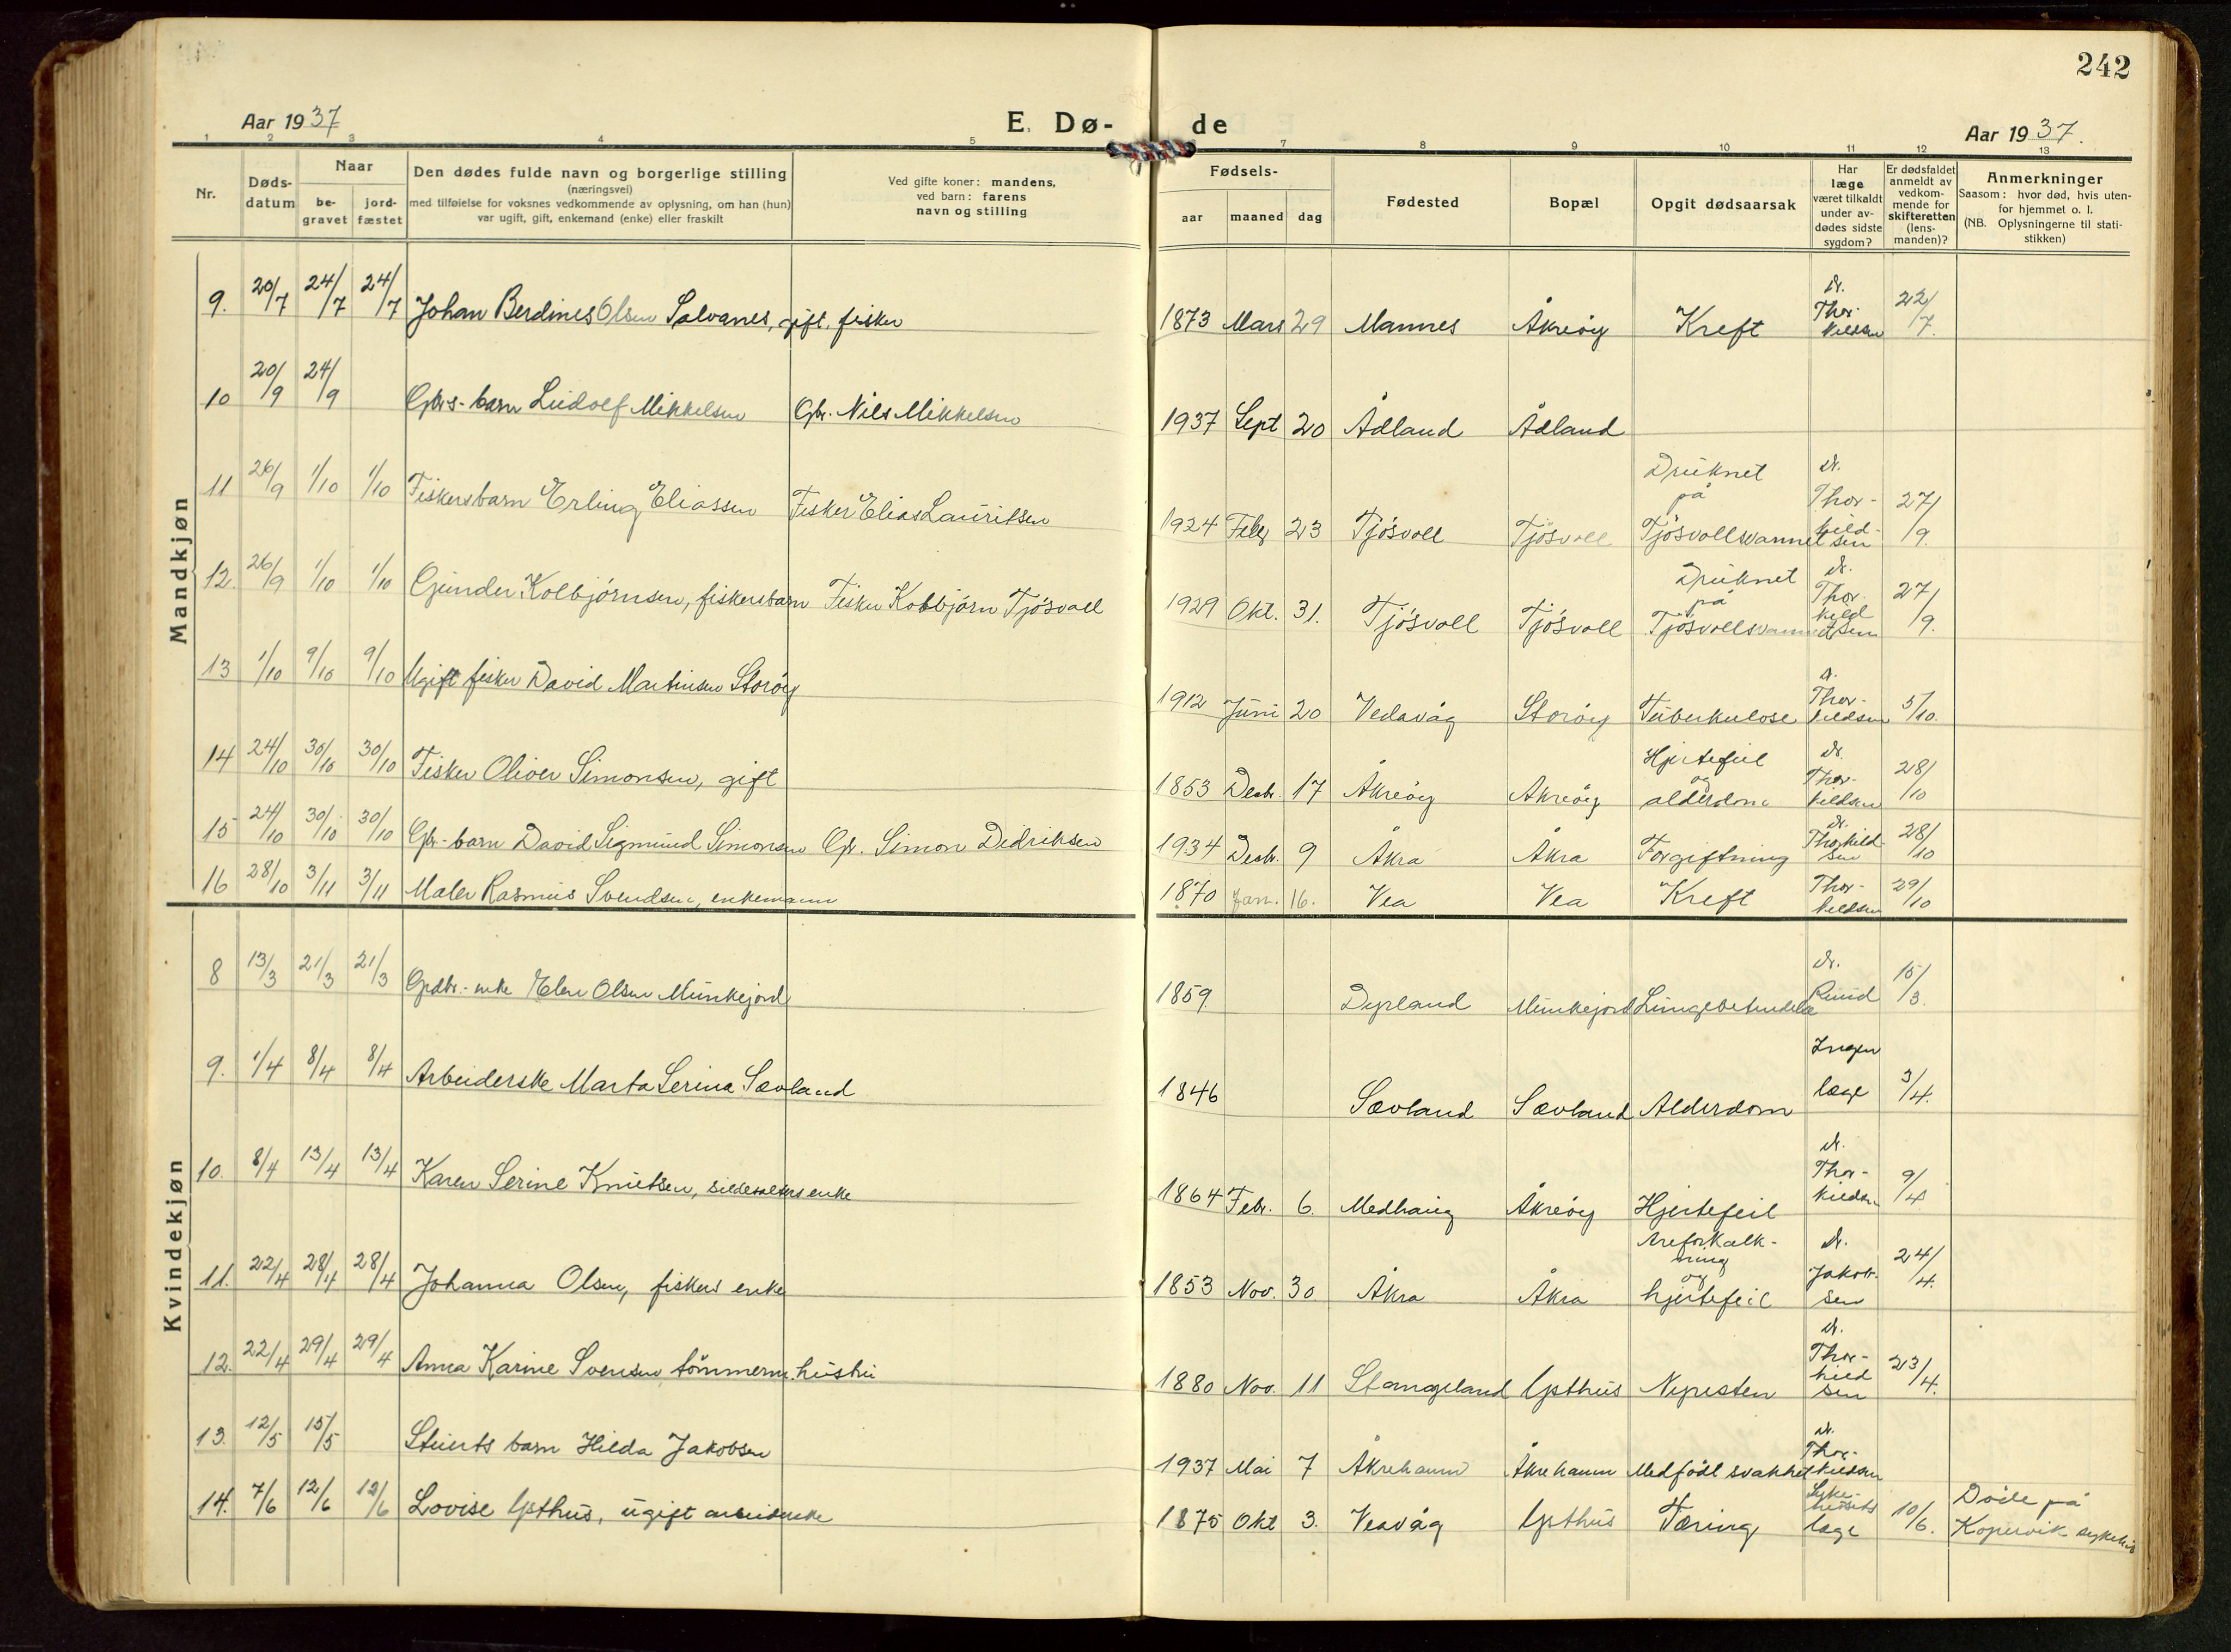 242
Aar 1937
E. Dø-
de
Aar 1937.
1 2 3 4 5 7 8 9 10 11 12 13
Nr.
Døds-
datum
Naar
be-
gravet
jord-
fæstet
Den dødes fulde navn og borgerlige stilling
(næringsvei)
med tilføielse for voksnes vedkommende av oplysning, om han (hun)
var ugift, gift, enkemand (enke) eller fraskilt
Ved gifte koner: mandens,
ved barn: farens
navn og stilling
Fødsels-
aar
maaned
dag
Fødested
Bopæl
Opgit dødsaarsak
Har
læge
været tilkaldt
under av-
dødes sidste
sygdom?
Er dødsfaldet
anmeldt av
vedkom-
mende for
skifteretten
(lens-
manden)?
Anmerkninger
Saasom: hvor død, hvis uten-
for hjemmet o. l.
(NB. Oplysningerne til stati-
stikken)
Mandkjøn
9. 20/7 24/7 24/7 Johan Berdines Olsen Salvanes, gift, fisker 1873 Mars 29 Mannes Åkreöy Kreft Dr. Thor-kildsen 22/7.
10 20/9 24/9 Gbrs-barn Ludolf Mikkelsen Gbr. Nils Mikkelsen 1937 Sept 20 Ådland Ådland
11 26/9 1/10 1/10 Fiskersbarn Erling Eliassen Fisker Elias Lauritsen 1924 Febr 23 Tjösvoll Tjösvoll Druknet på Tjösvollsvannet Dr. Thor-kild-sen 27/9.
12. 26/9 1/10 1/10 Gunder Kolbjörnsen, fiskersbarn Fisker Kolbjörn Tjösvoll 1929 Okt. 31. Tjösvoll Tjösvoll Druknet på Tjösvollsvannet Dr. Thor-kildsen 27/9.
13 1/10 9/10 9/10 Ugift fisker David Martinsen Storöy 1912 Juni 20 Vedavåg Storöy Tuberkulose Dr. Thor-kildsen 5/10.
14 24/10 30/10 30/10 Fisker Oliver Simonsen, gift 1853 Desbr. 17 Åkreöy Åkreöy Hjertefeil og alderdom Dr. Thor-kildsen 28/10
15 24/10 30/10 30/10 Gbr-barn David Sigmund Simonsen Gbr. Simon Didriksen 1934 Desbr. 9 Åkra Åkra Forgiftning Dr. Thorkild-sen 28/10
16 28/10 3/11 3/11 Maler Rasmus Svendsen, enkemann 1870 Jan. 16. Vea Vea Kreft Thor-kildsen 29/10
Kvindekjøn
8 13/3 21/3 21/3 Grdbr.-enke Elen Olsen Munkejord 1859. Dyrland Munkejord Lungebetendelse Dr. Ruud 15/3.
9. 1/4 8/4 8/4 Arbeiderske Marta Serina Sævland 1846 Sævland Sævland Alderdom Ingen læge 3/4.
10. 8/4 13/4 13/4 Karen Serine Knutsen, sildesalters enke 1864 Febr. 6. Medhaug Åkreöy Hjertefeil Dr. Thor-kildsn 9/4
11. 22/4 28/4 28/4 Johanna Olsen, fiskers enke 1853 Nov. 30 Åkra Åkra Areforkalk-ning og hjertefeil Dr. Jakob-sen 24/4.
12. 22/4 29/4 29/4 Anna Karine Svensen tömmerm. hustru 1880 Nov. 11 Stangeland Östhus Nyresten Dr. Thor-kild sen 23/4.
13. 12/5 15/5 Stuerts barn Hilda Jakobsen 1937 Mai 7 Åkrehamn Åkrehamn Medfödt svakhet Dr. Thor-kildsen
14. 7/6 12/6 12/6 Lovise Östhus, ugift arbeiderske 1875 Okt 3. Veavåg Östhus Tæring Syke-husets læge 10/6. Döde på Kopervik sykehus